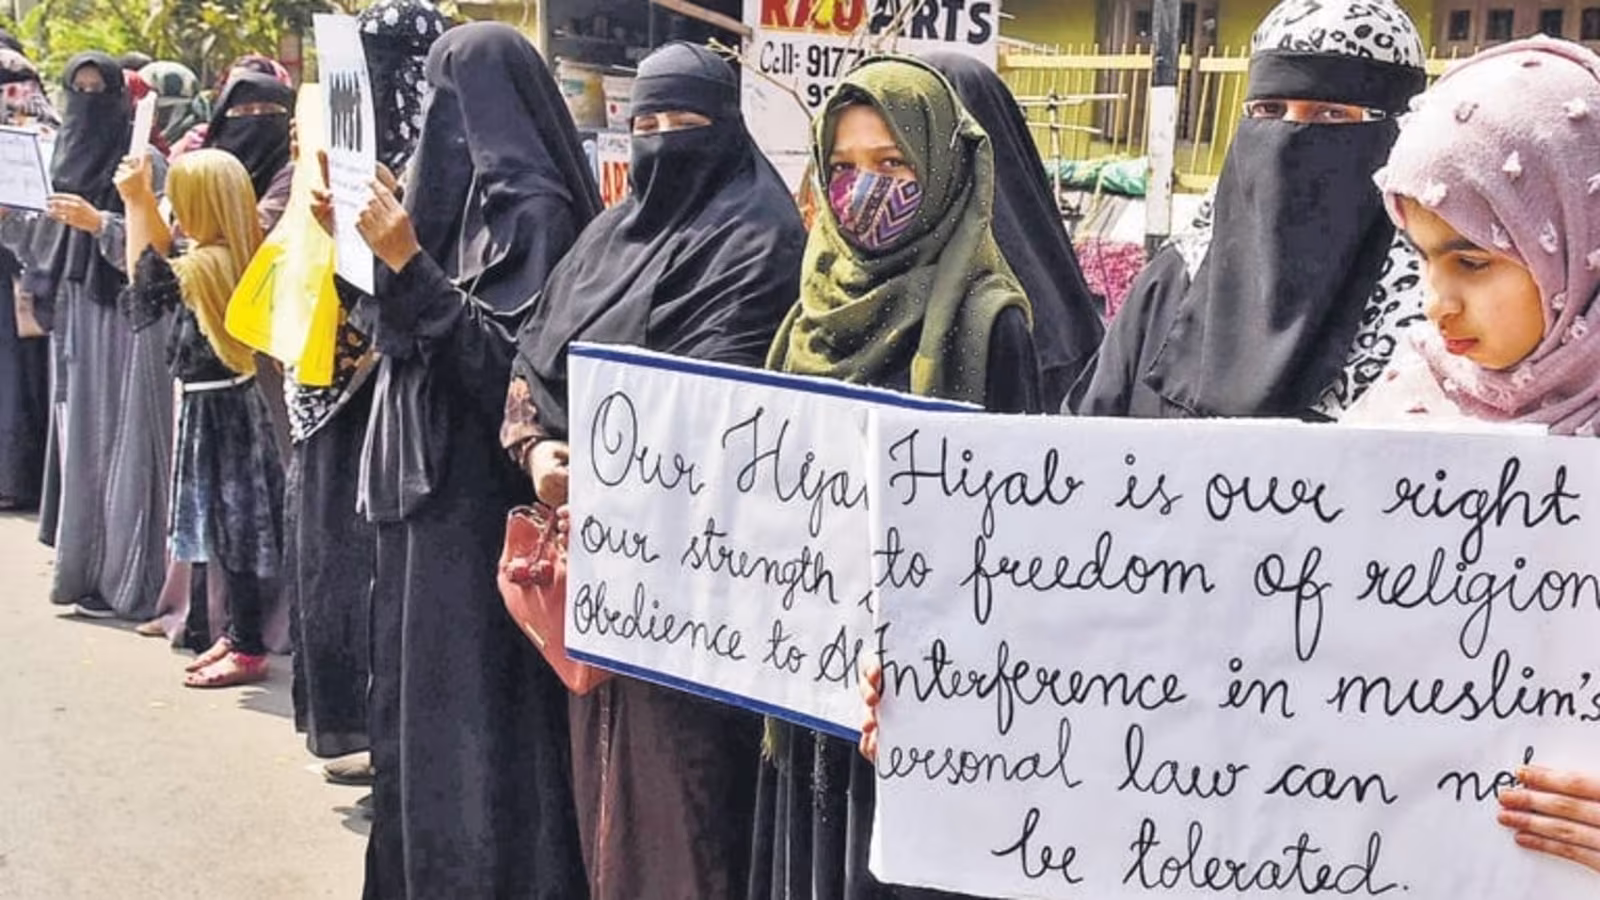 RAO ARTS
Cell: 9177
Our Hija
our strength
Obedience to Al
Hijab is our right
to freedom of religion
Interference in muslim's
ersonal law can not
be tolerated.